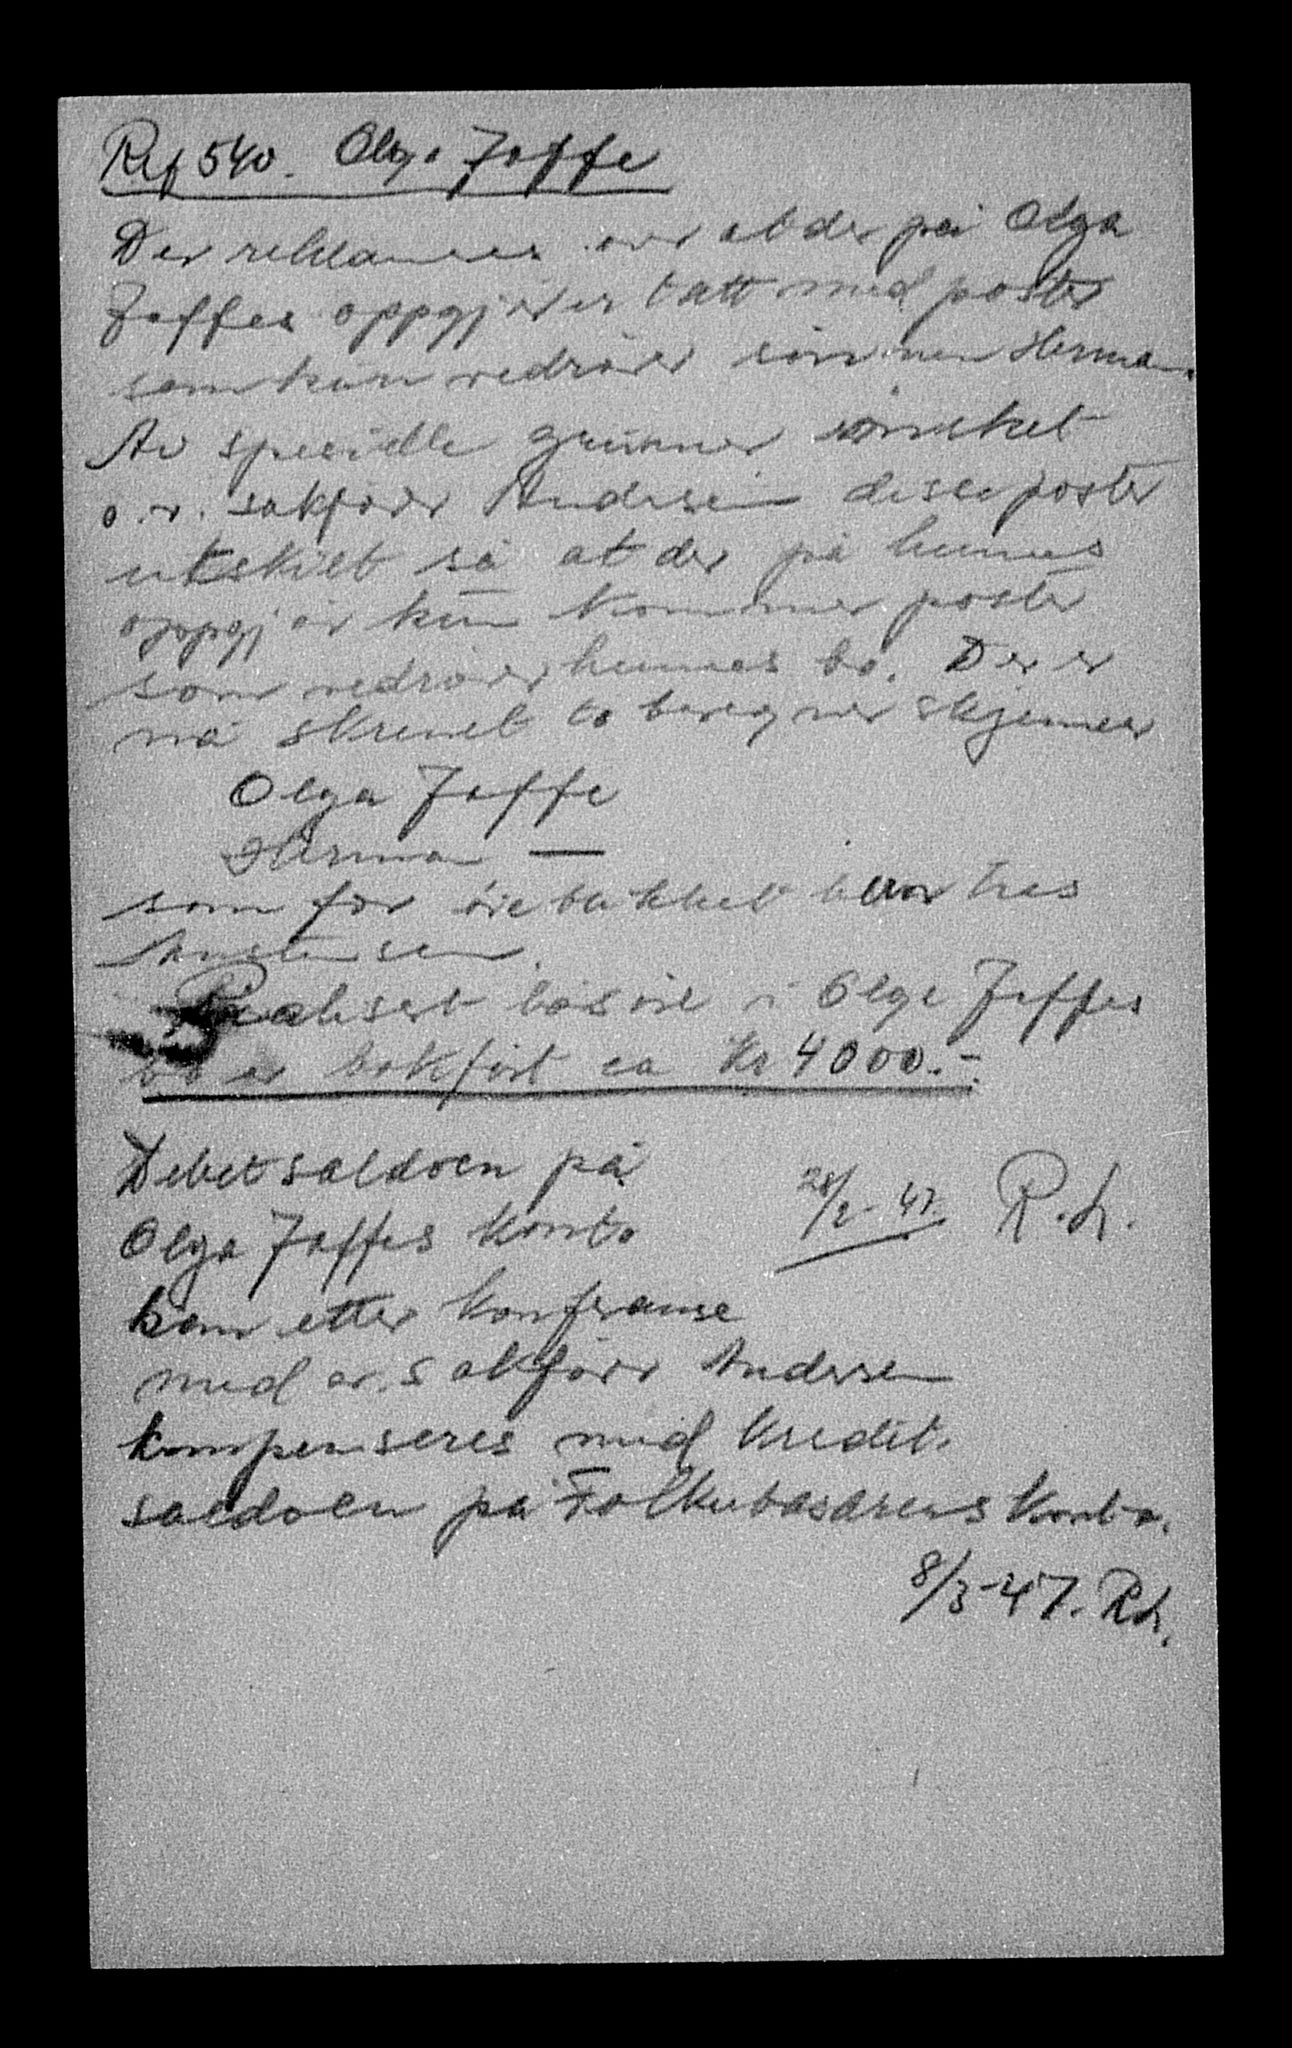 Ref 540. Olga Jaffe
Der reklameres over at der på Olga
Jaffes oppgjør er tatt med poster
som kun vedrører sønnen Herman.
Av spesielle grunner ønsket
o.r. sakfører Andersen disse poster
utskilt så at der på hennes
oppgjør kun kommer poster
som vedrører hennes bo. Der er
nå skrevet to beregner skjemaer
Olga Jaffe
Herman —
som for øieblikket beror hos
Realisert løsøre i Olga Jaffes
bo er bokført ca Kr 4000.-
Debetsaldoen på
28/2-47. R.L.
Olga Jaffes konto
kan etter konferanse
med o.r. sakfører Andersen
kompenseres med kredit-
saldoen på Folkebasarens konto.
8/3-47. R.L.